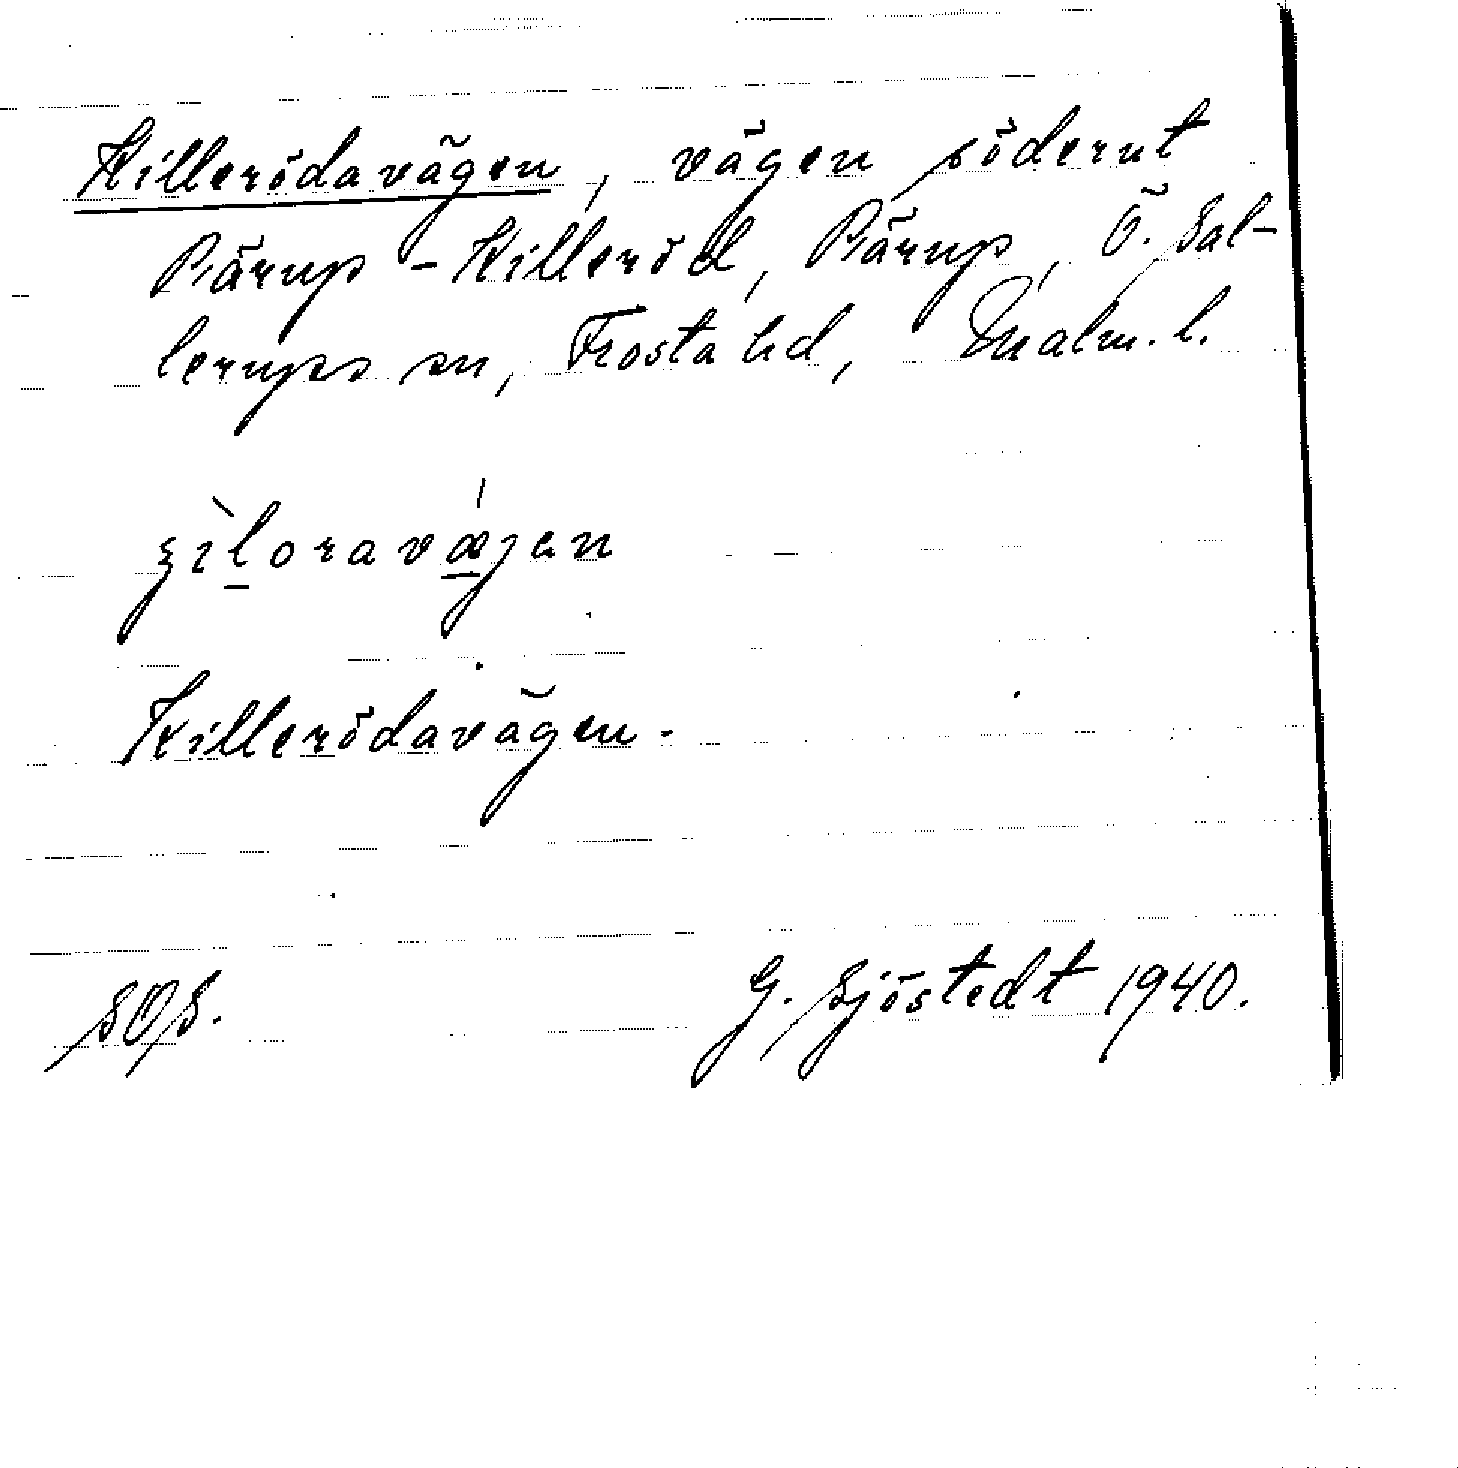 Killerödavägen, vägen söderut
Pärup - Killeröd, Pärup, Ö. Sal-
lerups sn, Frosta hd, Malm. l.
ʒiloravæjen
Killerödavägen.
SOS. G. Sjöstedt 1940.